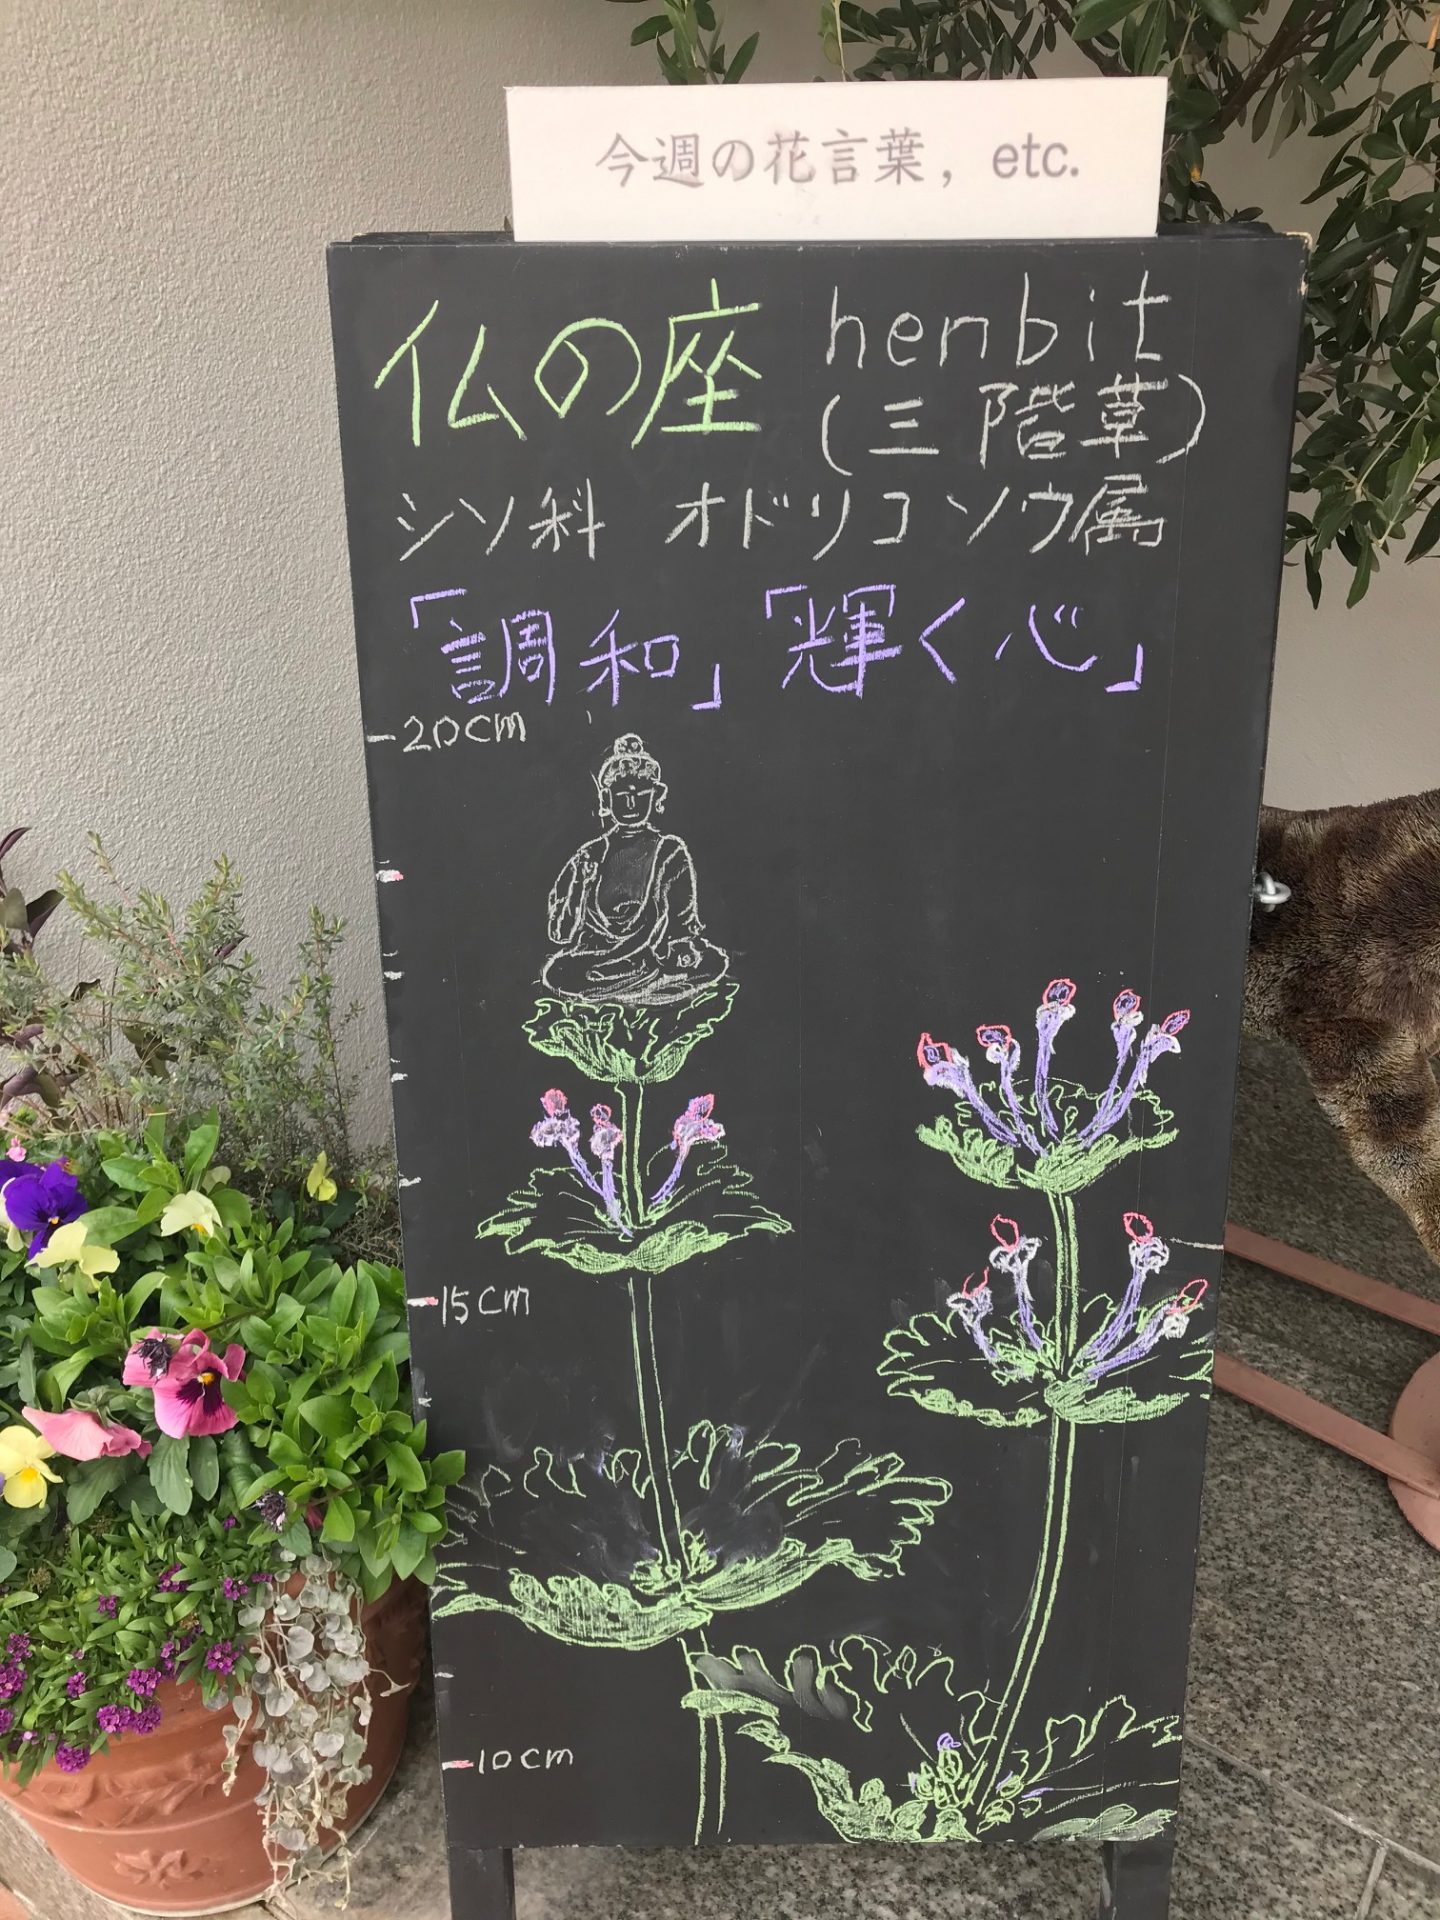 今週の花言葉, etc.
仏の座 henbit
(三階草)
シソ科 オドリコソウ属
「調和」「輝く心」
20cm
15cm
10cm